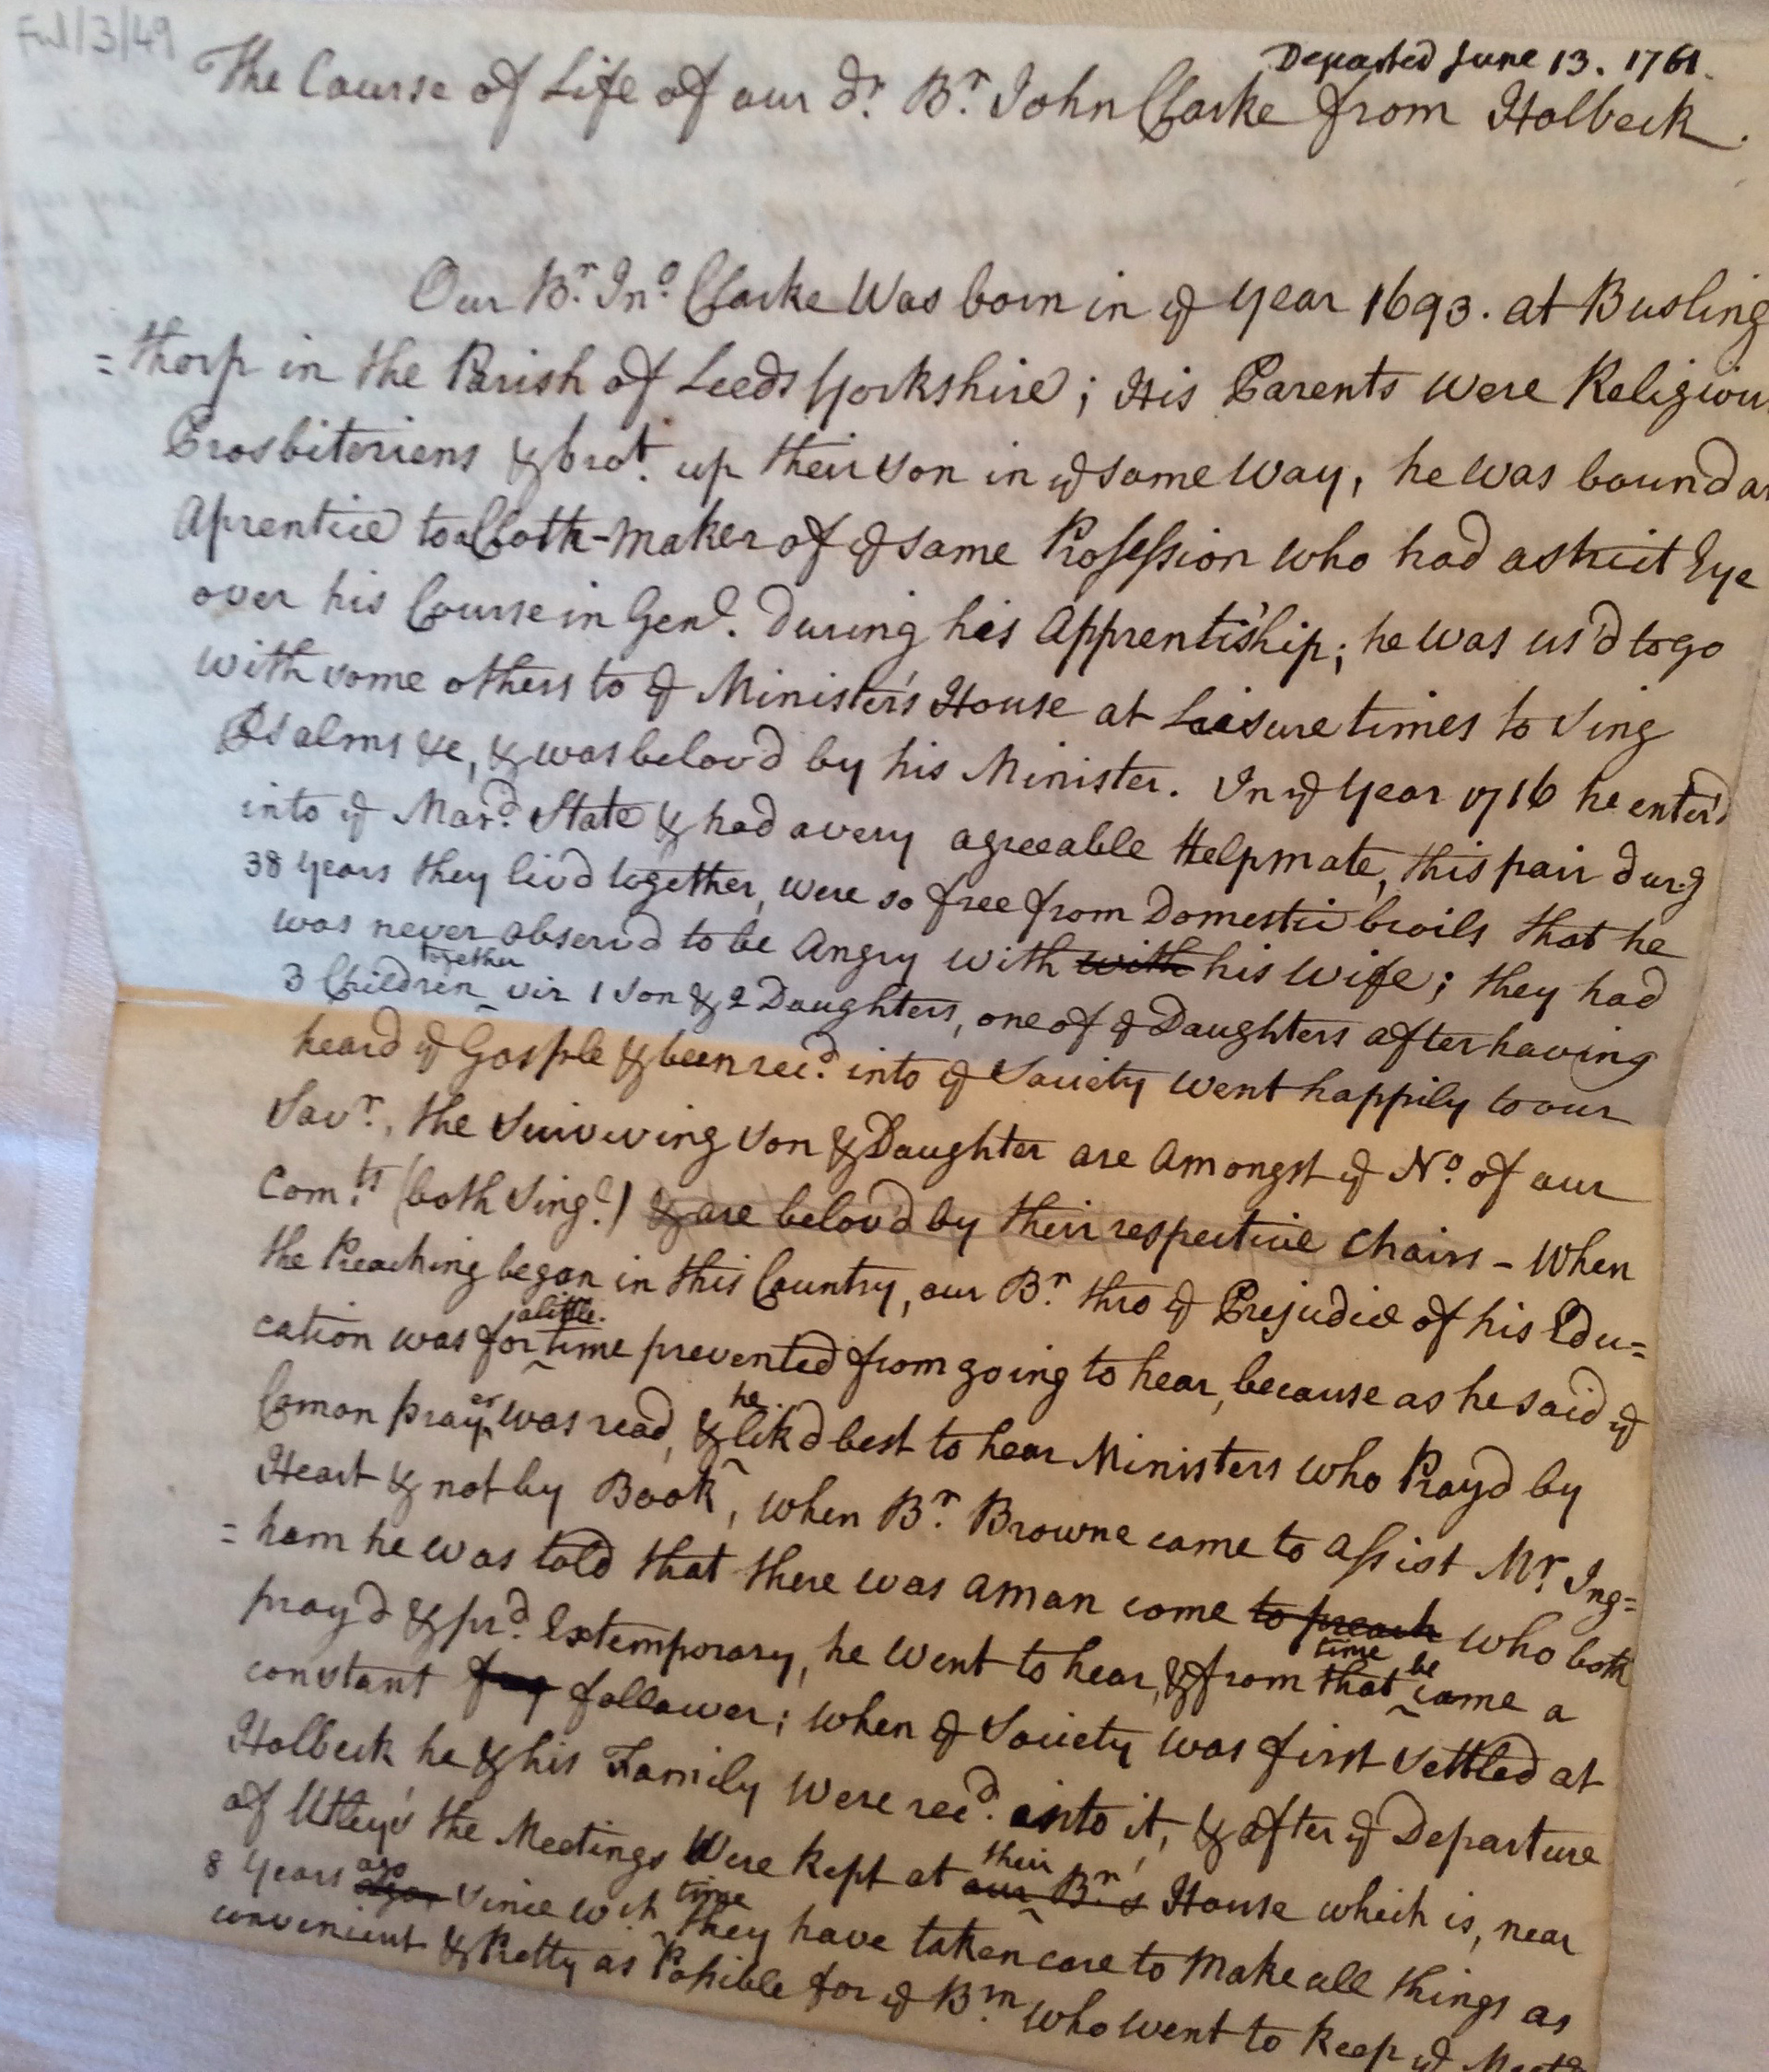 Ful/3/49
Departed June 13. 1761.
The Course of Life of our dr. Br. John Clarke from Holbeck.
Our Br. Jno. Clarke Was born in ye Year 1693. at Busling
=thorp in the Parish of Leeds Yorkshire; His Parents were Religiou
Prosbiteriens & brot. up their son in ye same way, he was bound a
Aprentice to a Cloth-maker of ye same Profession who had a strict Eye
over his Course in Genl. During his Apprentiship; he was us'd to go
with some others to ye Minister's House at Leisure times to sing
Psalms &c, & was belov'd by his Minister. In ye Year 1716 he enter'd
into ye Mard. State & had a very agreeable Helpmate, this pair durg
38 Years they liv'd together, were so free from Domestic broils that he
was never observ'd to be Angry with with his wife; they had
3 Children together viz 1 son & 2 Daughters, one of ye Daughters after having
heard ye Gosple & been recd. into ye Society went happily to our
Savr., the Surviving son & Daughter are amongst ye No. of our
Comts. (both Singl.) & are belov'd by their respective Choirs – When
the Preaching began in this Country, our Br. thro ye Prejudice of his Edu=
cation was for a little time prevented from going to hear, because as he said ye
Comon prayer was read, & he lik'd best to hear Ministers who Pray'd by
Heart & not by Book, when Br. Browne came to assist Mr. Ing=
=ham he was told that there was a man come to preach who both
pray'd & prd. Extemporary, he went to hear, & from that time became a
constant follower; when ye Society was first settled at
Holbeck he & his Family were recd. into it, & after ye Departure
of Utley's the Meetings Were kept at our Br.'s their House which is, near
8 Years ago since wch time they have taken care to make all things as
convenient & Pretty as Possible for ye Brn. who went to keep ye